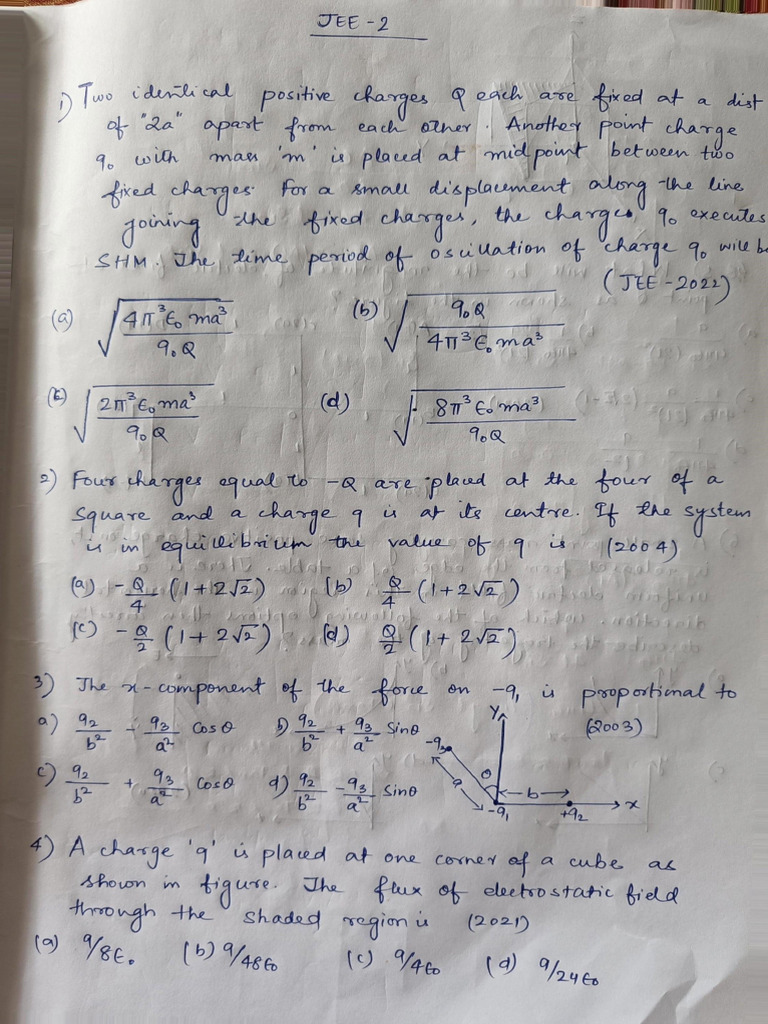 JEE - 2
1) Two identical positive charges Q each are fixed at a dist
of "2a" apart from each other. Another point charge
q₀ with mass 'm' is placed at midpoint between two
fixed charges. For a small displacement along the line
joining the fixed charges, the charge q₀ executes
SHM. The time period of oscillation of charge q₀ will be
(JEE - 2022)
(a) √(4π³ε₀ma³ / q₀Q) (b) √(q₀Q / 4π³ε₀ma³)
(c) √(2π³ε₀ma³ / q₀Q) (d) √(8π³ε₀ma³ / q₀Q)
2) Four charges equal to -Q are placed at the four of a
square and a charge q is at its centre. If the system
is in equilibrium the value of q is (2004)
(a) -Q/4 (1+2√2) (b) Q/4 (1+2√2)
(c) -Q/2 (1+2√2) (d) Q/2 (1+2√2)
3) The x-component of the force on -q₁ is proportional to
(2003)
a) q₂/b² - q₃/a² Cosθ b) q₂/b² + q₃/a² Sinθ
c) q₂/b² + q₃/a² Cosθ d) q₂/b² - q₃/a² Sinθ
Y
-q₃
a
θ
b
-q₁
+q₂
x
4) A charge 'q' is placed at one corner of a cube as
shown in figure. The flux of electrostatic field
through the shaded region is (2021)
(a) q/8ε₀ (b) q/48ε₀ (c) q/4ε₀ (d) q/24ε₀